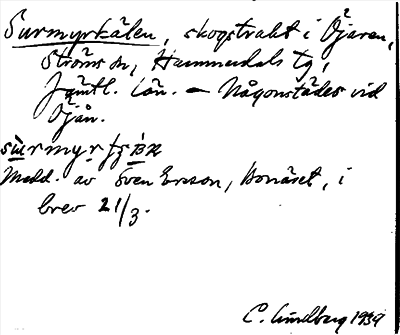 Surmyrkälen, skogstrakt i Öjaren,
Ströms sn, Hammerdals tg,
Jämtl. län. – Någonstädes vid
Öjån.
Medd. av Sven Ersson, Bonäset, i
brev 21/3.
C. Lindberg 1939